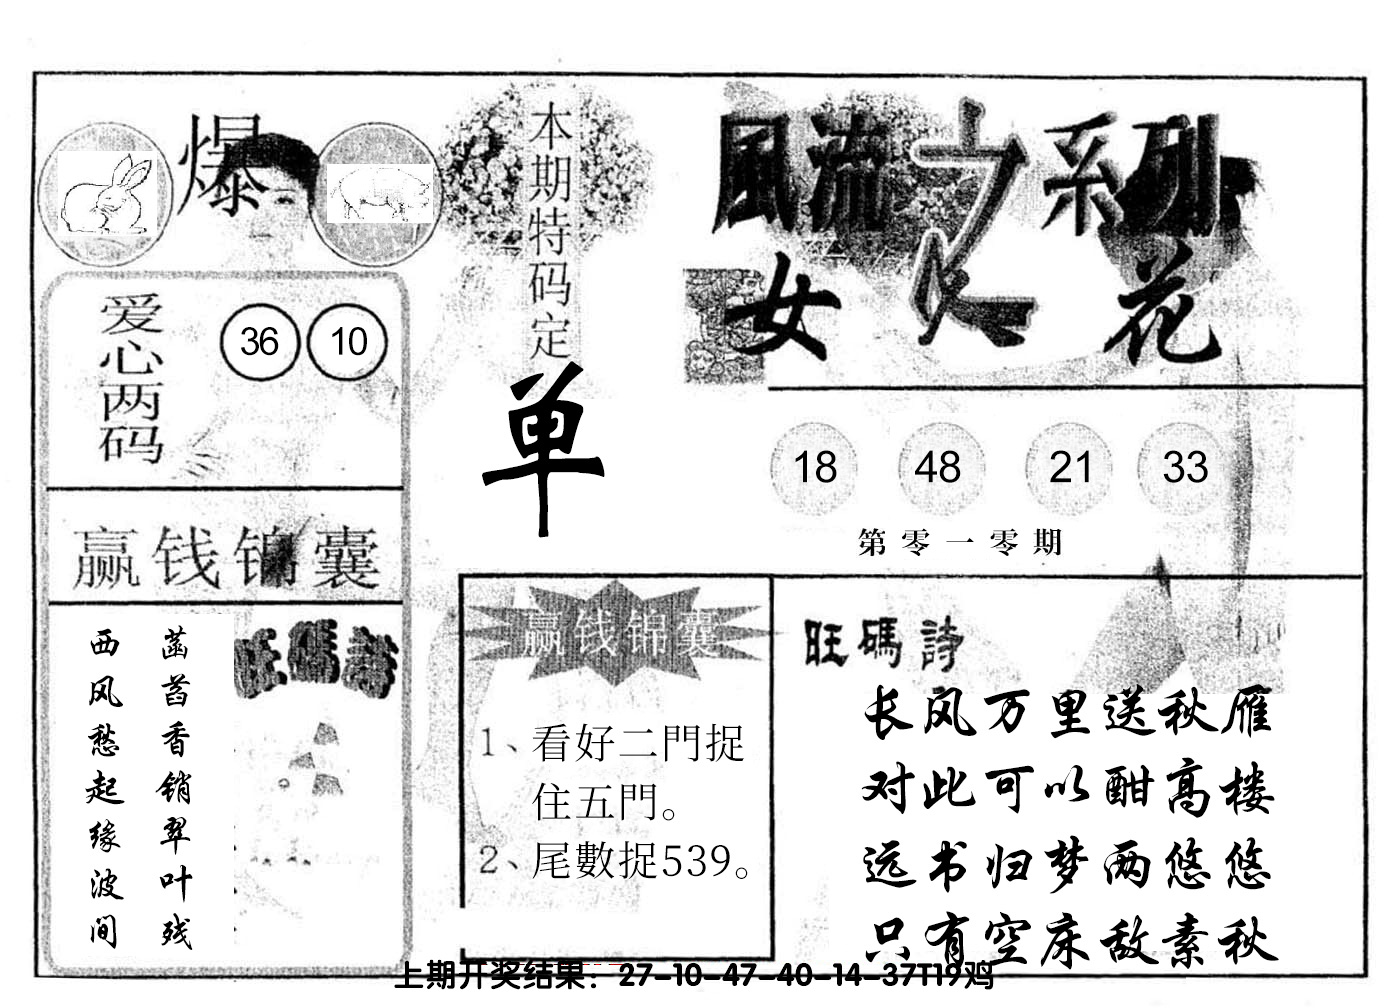 爆
本期特码定
单
風流之系列
女人花
爱心两码
36 10
18 48 21 33
第零一零期
赢钱锦囊
旺碼詩
菡萏香销翠叶残
西风愁起缘波间
赢钱锦囊
1、看好二門捉
住五門。
2、尾數捉539。
旺碼詩
长风万里送秋雁
对此可以酣高楼
远书归梦两悠悠
只有空床敌素秋
上期开奖结果：27-10-47-40-14-37T19鸡